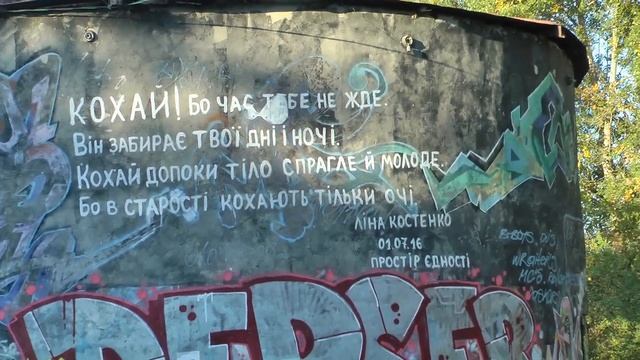 КОХАЙ! Бо час тебе не жде.
Він забирає твої дні і ночі.
Кохай допоки тіло спрагле й молоде.
Бо в старості кохають тільки очі.
Ліна Костенко
01.07.16
простір Єдності
B-BOYS, DJ's
WRITERS